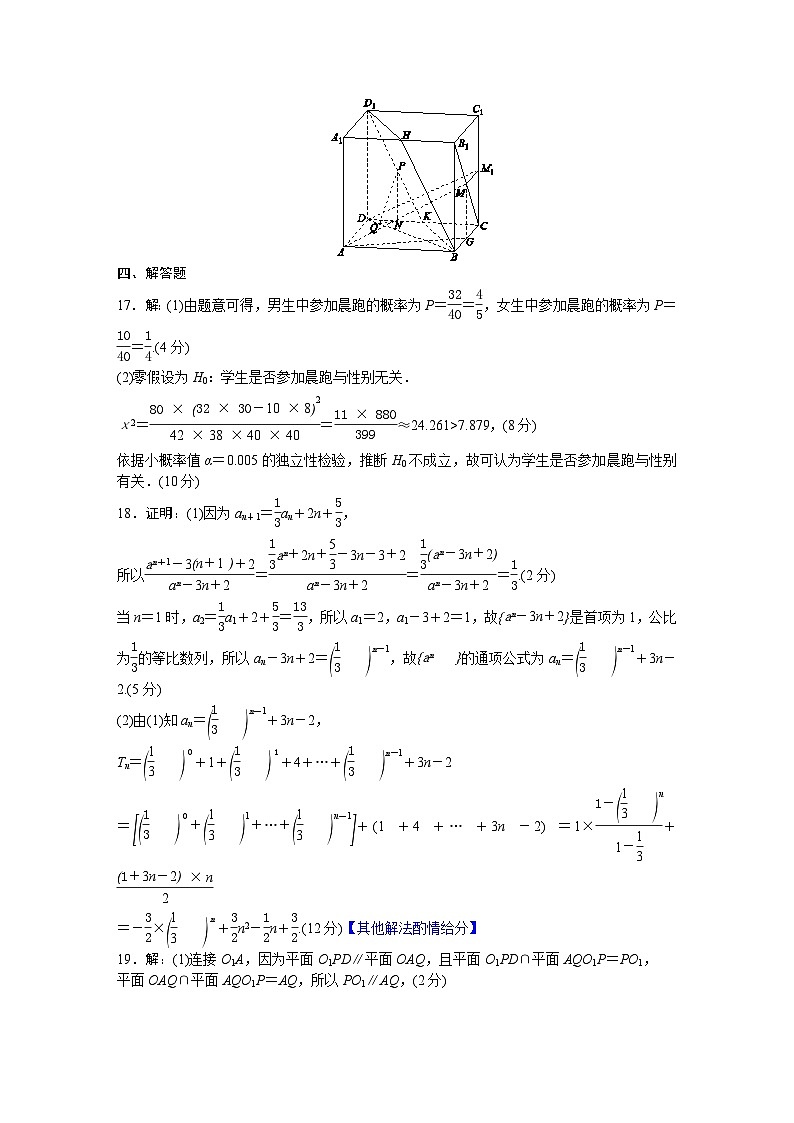 D₁ C₁
A₁ H B₁
P M₁
M
D Q N K C
G
A B
四、解答题
17．解：(1)由题意可得，男生中参加晨跑的概率为 P＝32/40＝4/5，女生中参加晨跑的概率为 P＝
10/40＝1/4.(4 分)
(2)零假设为 H₀：学生是否参加晨跑与性别无关．
x²＝80 × (32 × 30－10 × 8)²/(42 × 38 × 40 × 40)＝11 × 880/399≈24.261>7.879，(8 分)
依据小概率值 α＝0.005 的独立性检验，推断 H₀ 不成立，故可认为学生是否参加晨跑与性别
有关．(10 分)
18．证明：(1)因为 aₙ₊₁＝1/3aₙ＋2n＋5/3，
所以(aⁿ⁺¹－3(n＋1 )＋2)/(aⁿ－3n＋2)＝(1/3aⁿ＋2n＋5/3－3n－3＋2)/(aⁿ－3n＋2)＝(1/3(aⁿ－3n＋2))/(aⁿ－3n＋2)＝1/3.(2 分)
当 n＝1 时，a₂＝1/3a₁＋2＋5/3＝13/3，所以 a₁＝2，a₁－3＋2＝1，故{aⁿ－3n＋2}是首项为 1，公比
为1/3的等比数列，所以 aₙ－3n＋2＝(1/3)ⁿ⁻¹，故{aⁿ }的通项公式为 aₙ＝(1/3)ⁿ⁻¹＋3n－
2.(5 分)
(2)由(1)知 aₙ＝(1/3)ⁿ⁻¹＋3n－2，
Tₙ＝(1/3)⁰＋1＋(1/3)¹＋4＋…＋(1/3)ⁿ⁻¹＋3n－2
＝[(1/3)⁰＋(1/3)¹＋…＋(1/3)ⁿ⁻¹]＋(1 ＋4 ＋… ＋3n －2) ＝1×(1－(1/3)ⁿ)/(1－1/3)＋
(1＋3n－2) × n/2
＝－3/2×(1/3)ⁿ＋3/2n²－1/2n＋3/2.(12 分)【其他解法酌情给分】
19．解：(1)连接 O₁A，因为平面 O₁PD∥平面 OAQ，且平面 O₁PD∩平面 AQO₁P＝PO₁，
平面 OAQ∩平面 AQO₁P＝AQ，所以 PO₁∥AQ，(2 分)